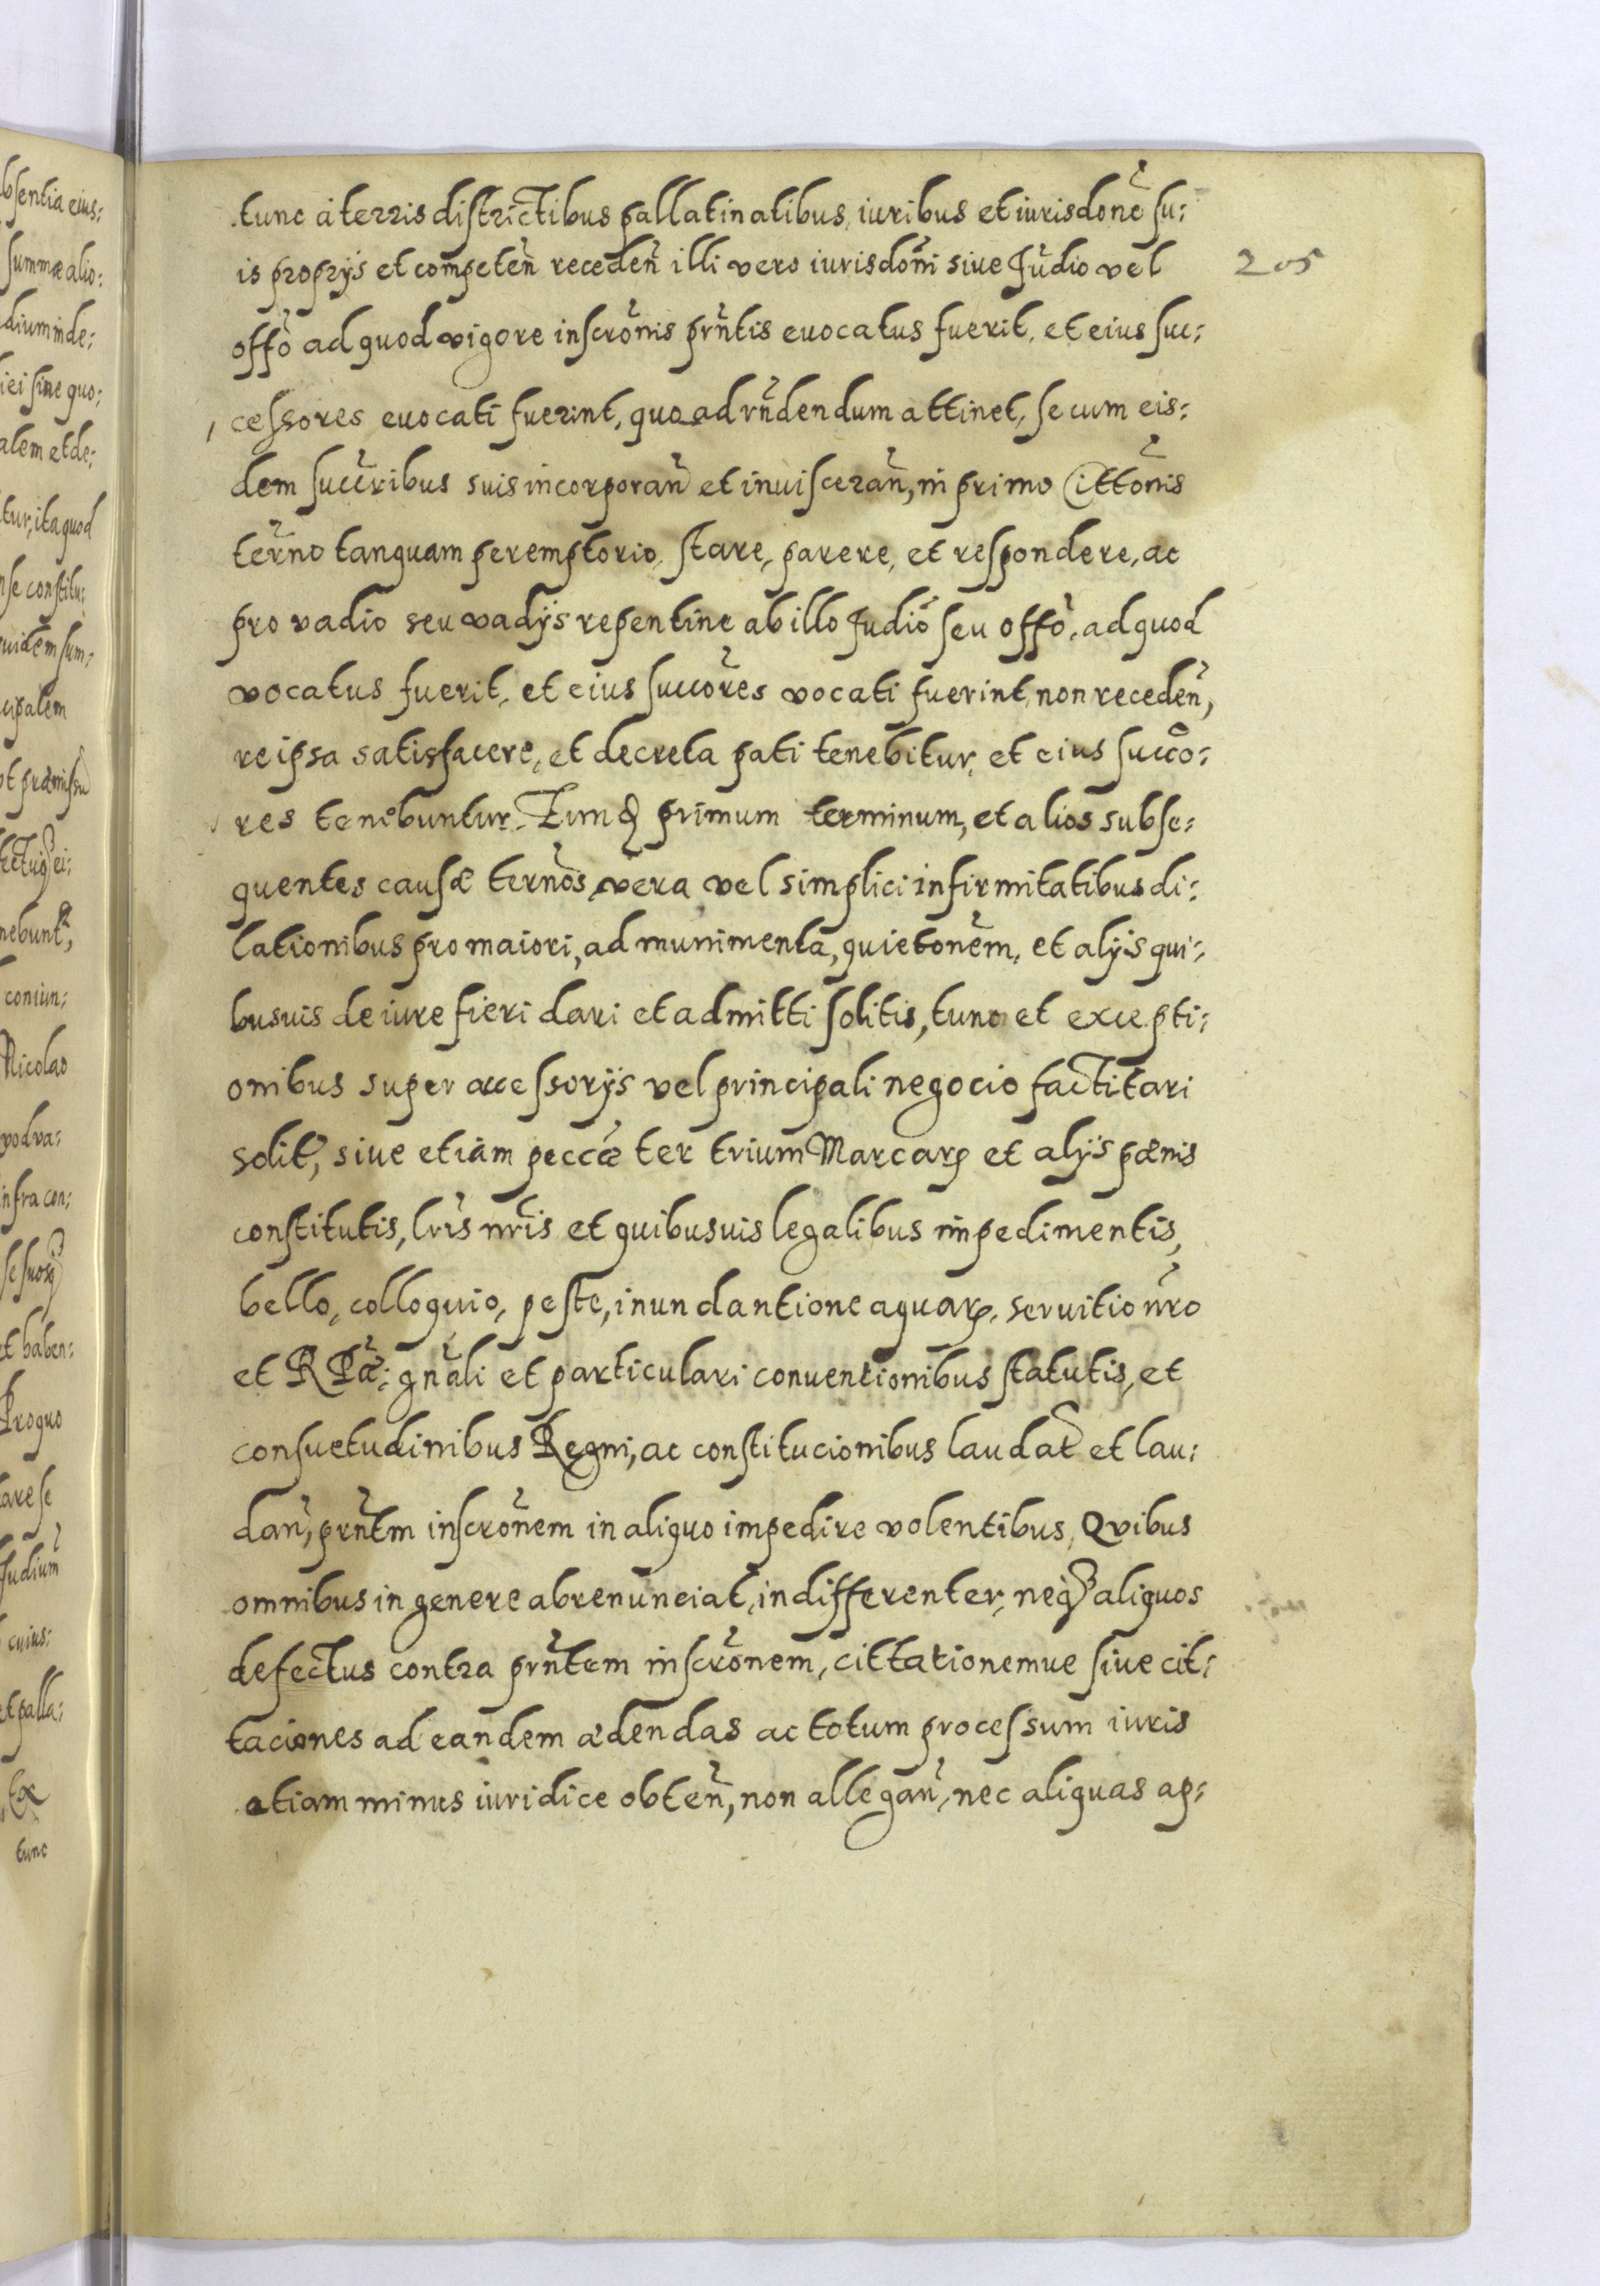 tunc a terris districtibus pallatinatibus, iuribus et iurisdone su:
is proprijs et competen̄ receden̄ illi vero iurisdoni siue Judio vel
205
offo ad quod vigore inscronis prntis euocatus fuerit, et eius suc:
cessores euocati fuerint, quo ad rn̄dendum attinet, se cum eis:
dem succribus suis incorporan̄ et inuisceran̄, in primo Cittonis
terno tanquam peremptorio, stare, parere, et respondere, ac
pro vadio seu vadijs repentine ab illo Judio seu offo, ad quod
vocatus fuerit, et eius succores vocati fuerint, non receden̄,
re ipsa satisfacere, et decreta pati tenebitur, et eius succo:
res tenebuntur. primum terminum, et alios subse:
quentes causæ ternos, vera vel simplici infirmitatibus di:
lationibus pro maiori, ad munimenta, quietonem, et alijs qui:
busuis de iure fieri dari et admitti solitis, tunc et excepti:
onibus super accessorijs vel principali negocio factitari
solit, siue etiam peccæ ter trium Marcarꝝ et alijs pænis
constitutis, lris nris et quibusuis legalibus impedimentis,
bello, colloquio, peste, inundantione aquarꝝ, seruitio nro
et R Pæ: gnali et particulari conuentionibus statutis, et
consuetudinibus Regni, ac constitucionibus laudat et lau:
dan̄, prntm inscronem in aliquo impedire volentibus, Quibus
omnibus in genere abrenunciat, indifferenter, neqꝫ aliquos
defectus contra prntem inscronem, cittationemue siue cit:
taciones ad eandem ædendas ac totum processum iuris
etiam minus iuridice obten̄, non allegan̄, nec aliquas ap: